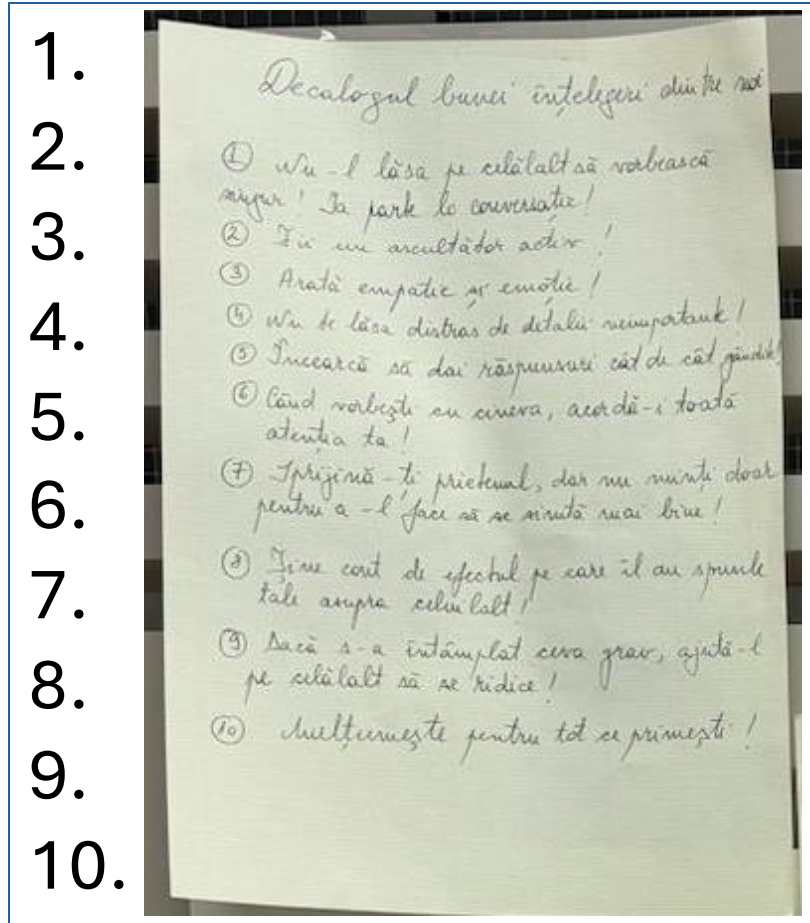 1.
2.
3.
4.
5.
6.
7.
8.
9.
10.
Decalogul bunei înțelegeri dintre noi
① Nu-l lăsa pe celălalt să vorbească
singur! Ia parte la conversație!
② Fii un ascultător activ!
③ Arată empatie și emoție!
④ Nu te lăsa distras de detalii neimportante!
⑤ Încearcă să dai răspunsuri cât de cât gândite!
⑥ Când vorbești cu cineva, acordă-i toată
atenția ta!
⑦ Sprijină-ți prietenul, dar nu minți doar
pentru a-l face să se simtă mai bine!
⑧ Ține cont de efectul pe care îl au spusele
tale asupra celuilalt!
⑨ Dacă s-a întâmplat ceva grav, ajută-l
pe celălalt să se ridice!
⑩ Mulțumește pentru tot ce primești!